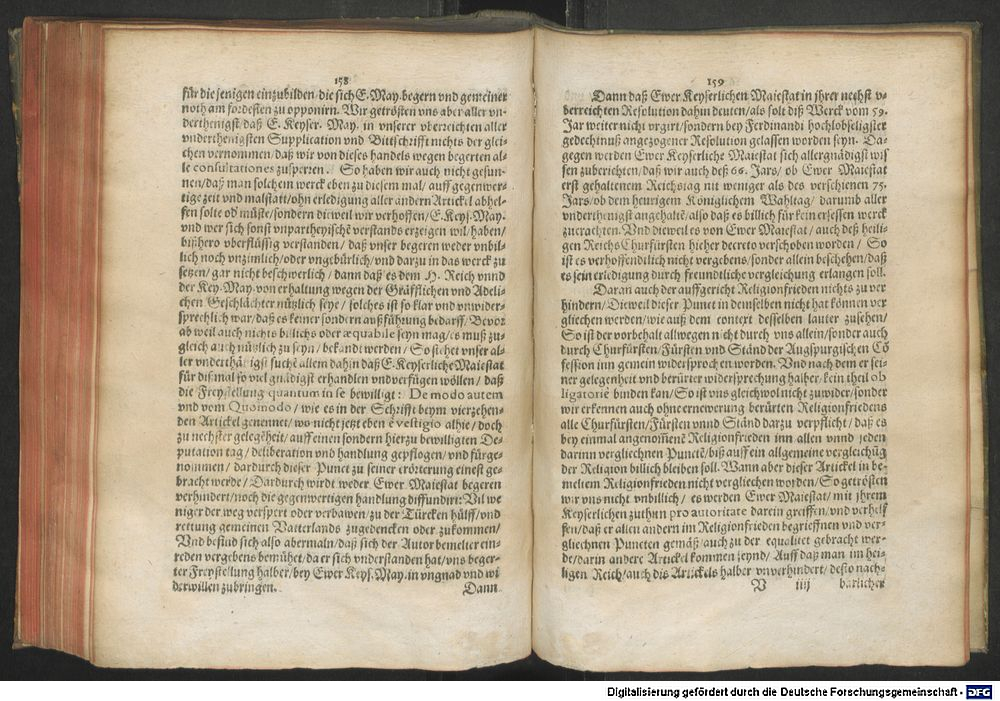 158
für die jenigen einzubilden/die sich E. May. begern vnd gemeiner
noth am fordesten zu opponirn. Wir getrösten vns aber aller vn-
derthenigst/daß E. Keyser. May. in vnserer vberreichten aller
vnderthenigsten Supplication vnd Bittschrifft nichts der glei-
chen vernommen/daß wir von dieses handels wegen begerten al-
le consultationes zusperren. So haben wir auch nicht gesun-
nen/daß man solchem werck eben zu diesem mal/auff gegenwer-
tige zeit vnd malstatt/ohn erledigung aller andern Artickel abhel-
fen solte od' müste/sondern dieweil wir verhoffen/E. Keys. May.
vnd wer sich sonst vnpartheyische verstands erzeigen wil/haben/
bißhero vberflüssig verstanden/daß vnser begeren weder vnbil-
lich noch vnzimlich/oder vngebürlich/vnd darzu in das werck zu
setzen/gar nicht beschwerlich/dann daß es dem H. Reich vnnd
der Key. May. von erhaltung wegen der Gräfflichen vnd Adeli-
chen Geschlächter nützlich seye/solches ist so klar vnd vnwider-
sprechlich war/daß es keiner sondern außführung bedarff/Bevor
ab weil auch nichts billichs oder æquabile seyn mag/es muß zu-
gleich auch nützlich zu seyn/bekandt werden/So stehet vnser al-
ler vnderthänigst suchē allein dahin/daß E. Keyserliche Maiestat
für dißmal so viel gnädigst erhandlen vnd verfügen wöllen/daß
die Freystellung quantum in se bewilligt: De modo autem
vnd vom Quomodo/wie es in der Schrifft beym vierzehen-
den Artickel genennet/wo nicht jetzt eben è vestigio alhie/doch
zu nechster gelegēheit/auff einen sondern hierzu bewilligten De-
putation tag/deliberation vnd handlung gepflogen/vnd fürge-
nommen/dardurch dieser Punct zu seiner erörterung einest ge-
bracht werde/Dardurch wirdt weder Ewer Maiestat begeren
verhindert/noch die gegenwertigen handlung diffundirt: Vil we
niger der weg versperrt oder verbawen/zu der Türcken hülff/vnd
rettung gemeinen Vatterlands zugedencken oder zukommen/
Vnd befind sich also abermaln/daß sich der Autor bemelter ein-
reden vergebens bemühet/da er sich vnderstanden hat/vns beger-
ter Freystellung halber/bey Ewer Keys. May. in vngnad vnd wi
derwillen zubringen.
Dann
159
Dann daß Ewer Keyserlichen Maiestat in jhrer nechst v-
berreichten Resolution dahin deuten/als solt diß Werck vom 59.
Jar weiter nicht vrgirt/sondern bey Ferdinandi hochlobseligster
gedechtnuß angezogener Resolution gelassen worden seyn. Da-
gegen werden Ewer Keyserliche Maiestat sich allergnädigst wis
sen zuberichten/daß wir auch deß 66. Jars/ob Ewer Maiestat
erst gehaltenem Reichstag nit weniger als des verschienen 75.
Jars/ob dem heurigem Königlichem Wahltag/darumb aller
vnderthenigst angehaltē/also daß es billich für kein ersessen werck
zuerachten. Vnd dieweil es von Ewer Maiestat/auch deß heili-
gen Reichs Churfürsten hieher decreto verschoben worden/So
ist es verhoffentlich nicht vergebens/sonder allein beschehen/daß
es sein erledigung durch freundtliche vergleichung erlangen soll.
Daran auch der auffgericht Religionfrieden nichts zu ver
hindern/Dieweil dieser Punct in demselben nicht hat können ver
gliechen werden/wie auß dem context desselben lauter zusehen/
So ist der vorbehalt allwegen nicht durch vns allein/sonder auch
durch Churfürsten/Fürsten vnd Ständ der Augspurgischen Cō
fession inn gemein widersprochen worden. Vnd nach dem er sei-
ner gelegenheit vnd berürter widersprechung halber/kein theil ob
ligatoriè binden kan/So ist vns gleichwol nicht zuwider/sonder
wir erkennen auch ohne ernewerung berürten Religionfriedens
alle Churfürsten/Fürsten vnnd Ständ darzu verpflicht/daß es
bey einmal angenommenē Religionfrieden inn allen vnnd jeden
darinn vergliechnen Punctē/biß auff ein allgemeine vergleichūg
der Religion billich bleiben soll. Wann aber dieser Artickel in be-
meltem Religionfrieden nicht vergliechen worden/So getrösten
wir vns nicht vnbillich/es werden Ewer Maiestat/mit jhrem
Keyserlichen zuthun pro autoritate darein greiffen/vnd verhelf
fen/daß er allen andern im Religionfrieden begrieffnen vnd ver-
gliechnen Puncten gemäß/auch zu der equalitet gebracht wer-
de/darin andere Artickel kommen seynd/Auff daß man im hei-
ligen Reich/auch dis Artickels halber vnverhindert/desto nach-
V iiij barlicher
Digitalisierung gefördert durch die Deutsche Forschungsgemeinschaft - DFG